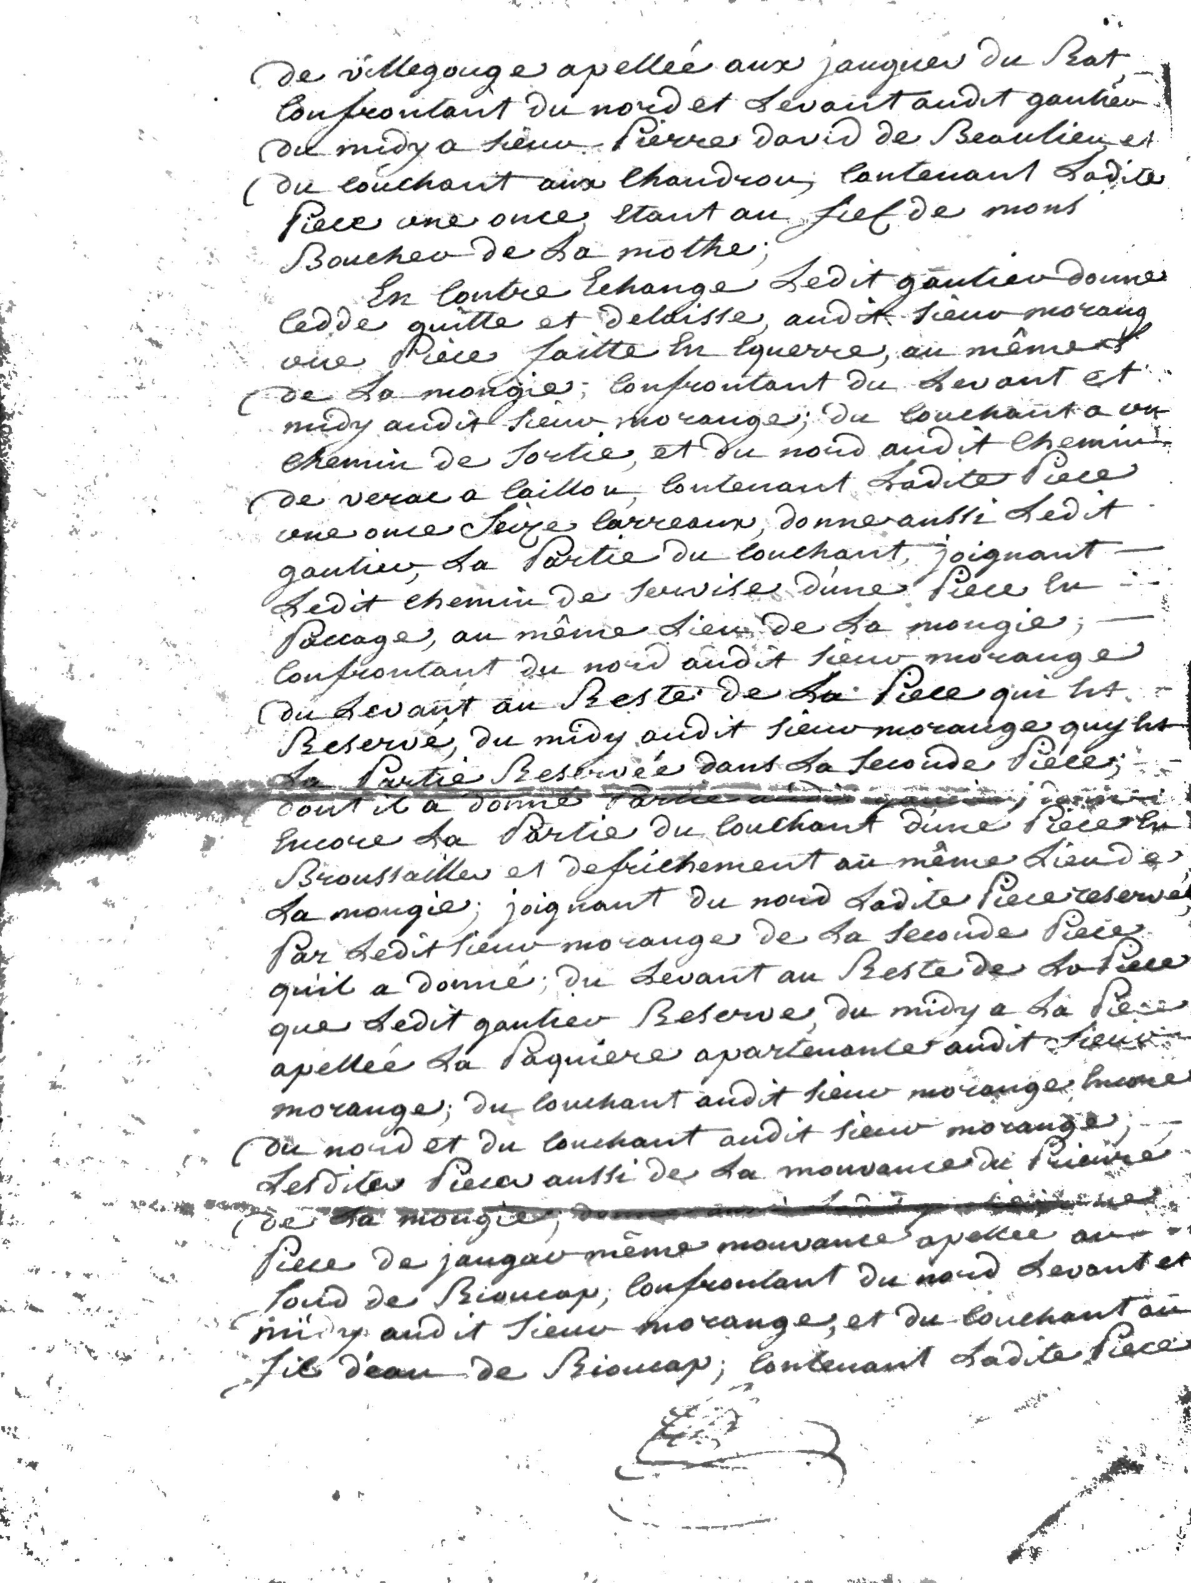 de villegouge apellée aux jaugues du Rat,
Confrontant du nord et Levant audit gautier
du midy a sieur Pierre david de Beaulieu, et
du couchant aux Chaudrou, Contenant Ladite
Piece une once, Etant au fief de mons
Boucher de La mothe;
En Contre Echange Ledit gautier donne
Cedde quitte et delaisse, audit sieur morang
une Pièce faitte En Equerre, au même
de La mongie; Confrontant du Levant et
midy audit sieur morange; du Couchant a un
Chemin de sortie, et du nord audit Chemin
de verac a Caillou, Contenant Ladite Piece
une once Seize Carreaux, donne aussi Ledit
gautier, La Partie du Couchant, joignant
Ledit Chemin de servise d'une Piece En
Paccage, au même Lieu de La mongie;
Confrontant du nord audit sieur morange
du Levant au Reste de La Piece qui Est
Reservé, du midy audit sieur morange quy Est
La Partie Reservée dans La Seconde Pièce;
dont il a donné Partie audit gautier, donne
Encore La Partie du Couchant d'une Pièce En
Broussailles et defrichement au même Lieu de
La mongie; joignant du nord Ladite Piece reservé
Par Ledit sieur morange de La Seconde Pièce
qu'il a donné; du Levant au Reste de La Piece
que Ledit gautier Reserve, du midy a La Piece
apellée La Paquiere apartenante audit sieur
morange; du Couchant audit sieur morange Encore
du nord et du Couchant audit sieur morange,
Lesdites Pieces aussi de La mouvance du Prieuré
de La mongie;
Piece de jaugar même mouvance apellée au
fond de Rioucap, Confrontant du nord Levant et
midy audit sieur morange, et du Couchant au
fil d'eau de Rioucap; Contenant Ladite Piece